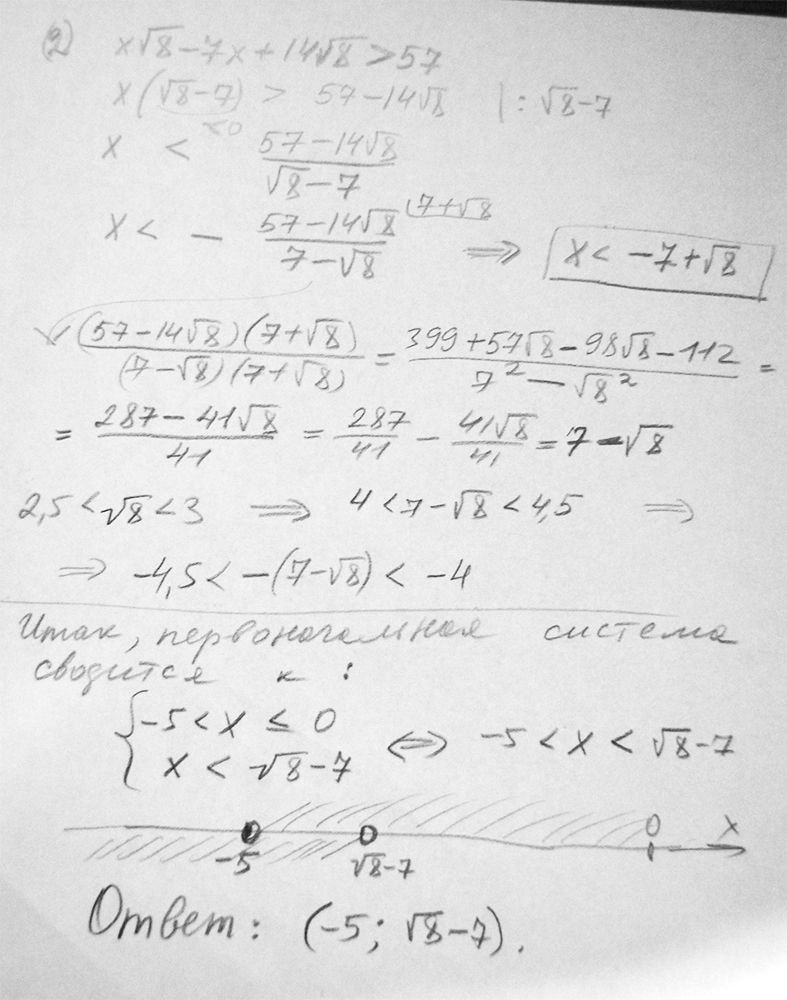 (2) x√8-7x+14√8>57
x(√8-7) > 57-14√8 | : √8-7
<0
x < (57-14√8)/(√8-7)
x < - (57-14√8)/(7-√8) (7+√8 ⇒ x < -7+√8
√ ((57-14√8)(7+√8))/((7-√8)(7+√8)) = (399+57√8-98√8-112)/(7²-√8²) =
= (287-41√8)/41 = 287/41 - 41√8/41 = 7-√8
2,5<√8<3 ⇒ 4<7-√8<4,5 ⇒
⇒ -4,5<-(7-√8)<-4
Итак, первоначальная система
сводится к :
{ -5<x≤0
{ x<√8-7 ⇔ -5<x<√8-7
-5 √8-7 0 x
Ответ: (-5; √8-7).